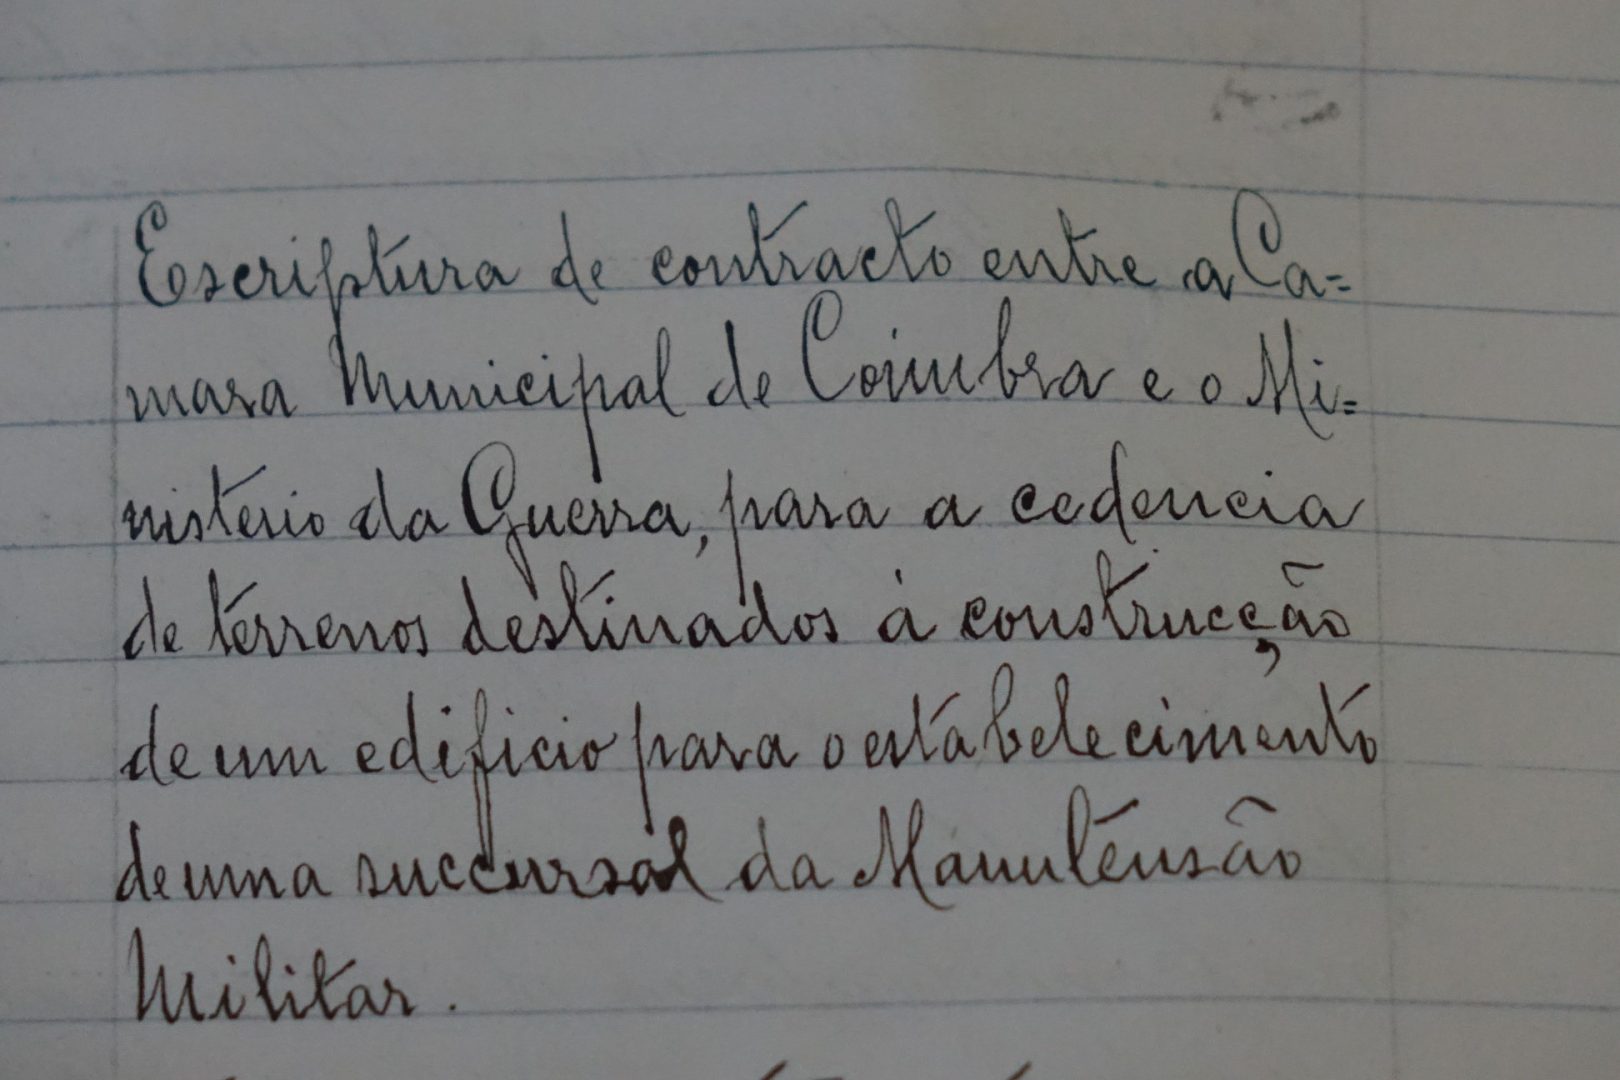 Escriptura de contracto entre a Ca=
mara Municipal de Coimbra e o Mi=
nisterio da Guerra, para a cedencia
de terrenos destinados á construcção
de um edificio para o estabelecimento
de uma succursal da Manutensão
Militar.